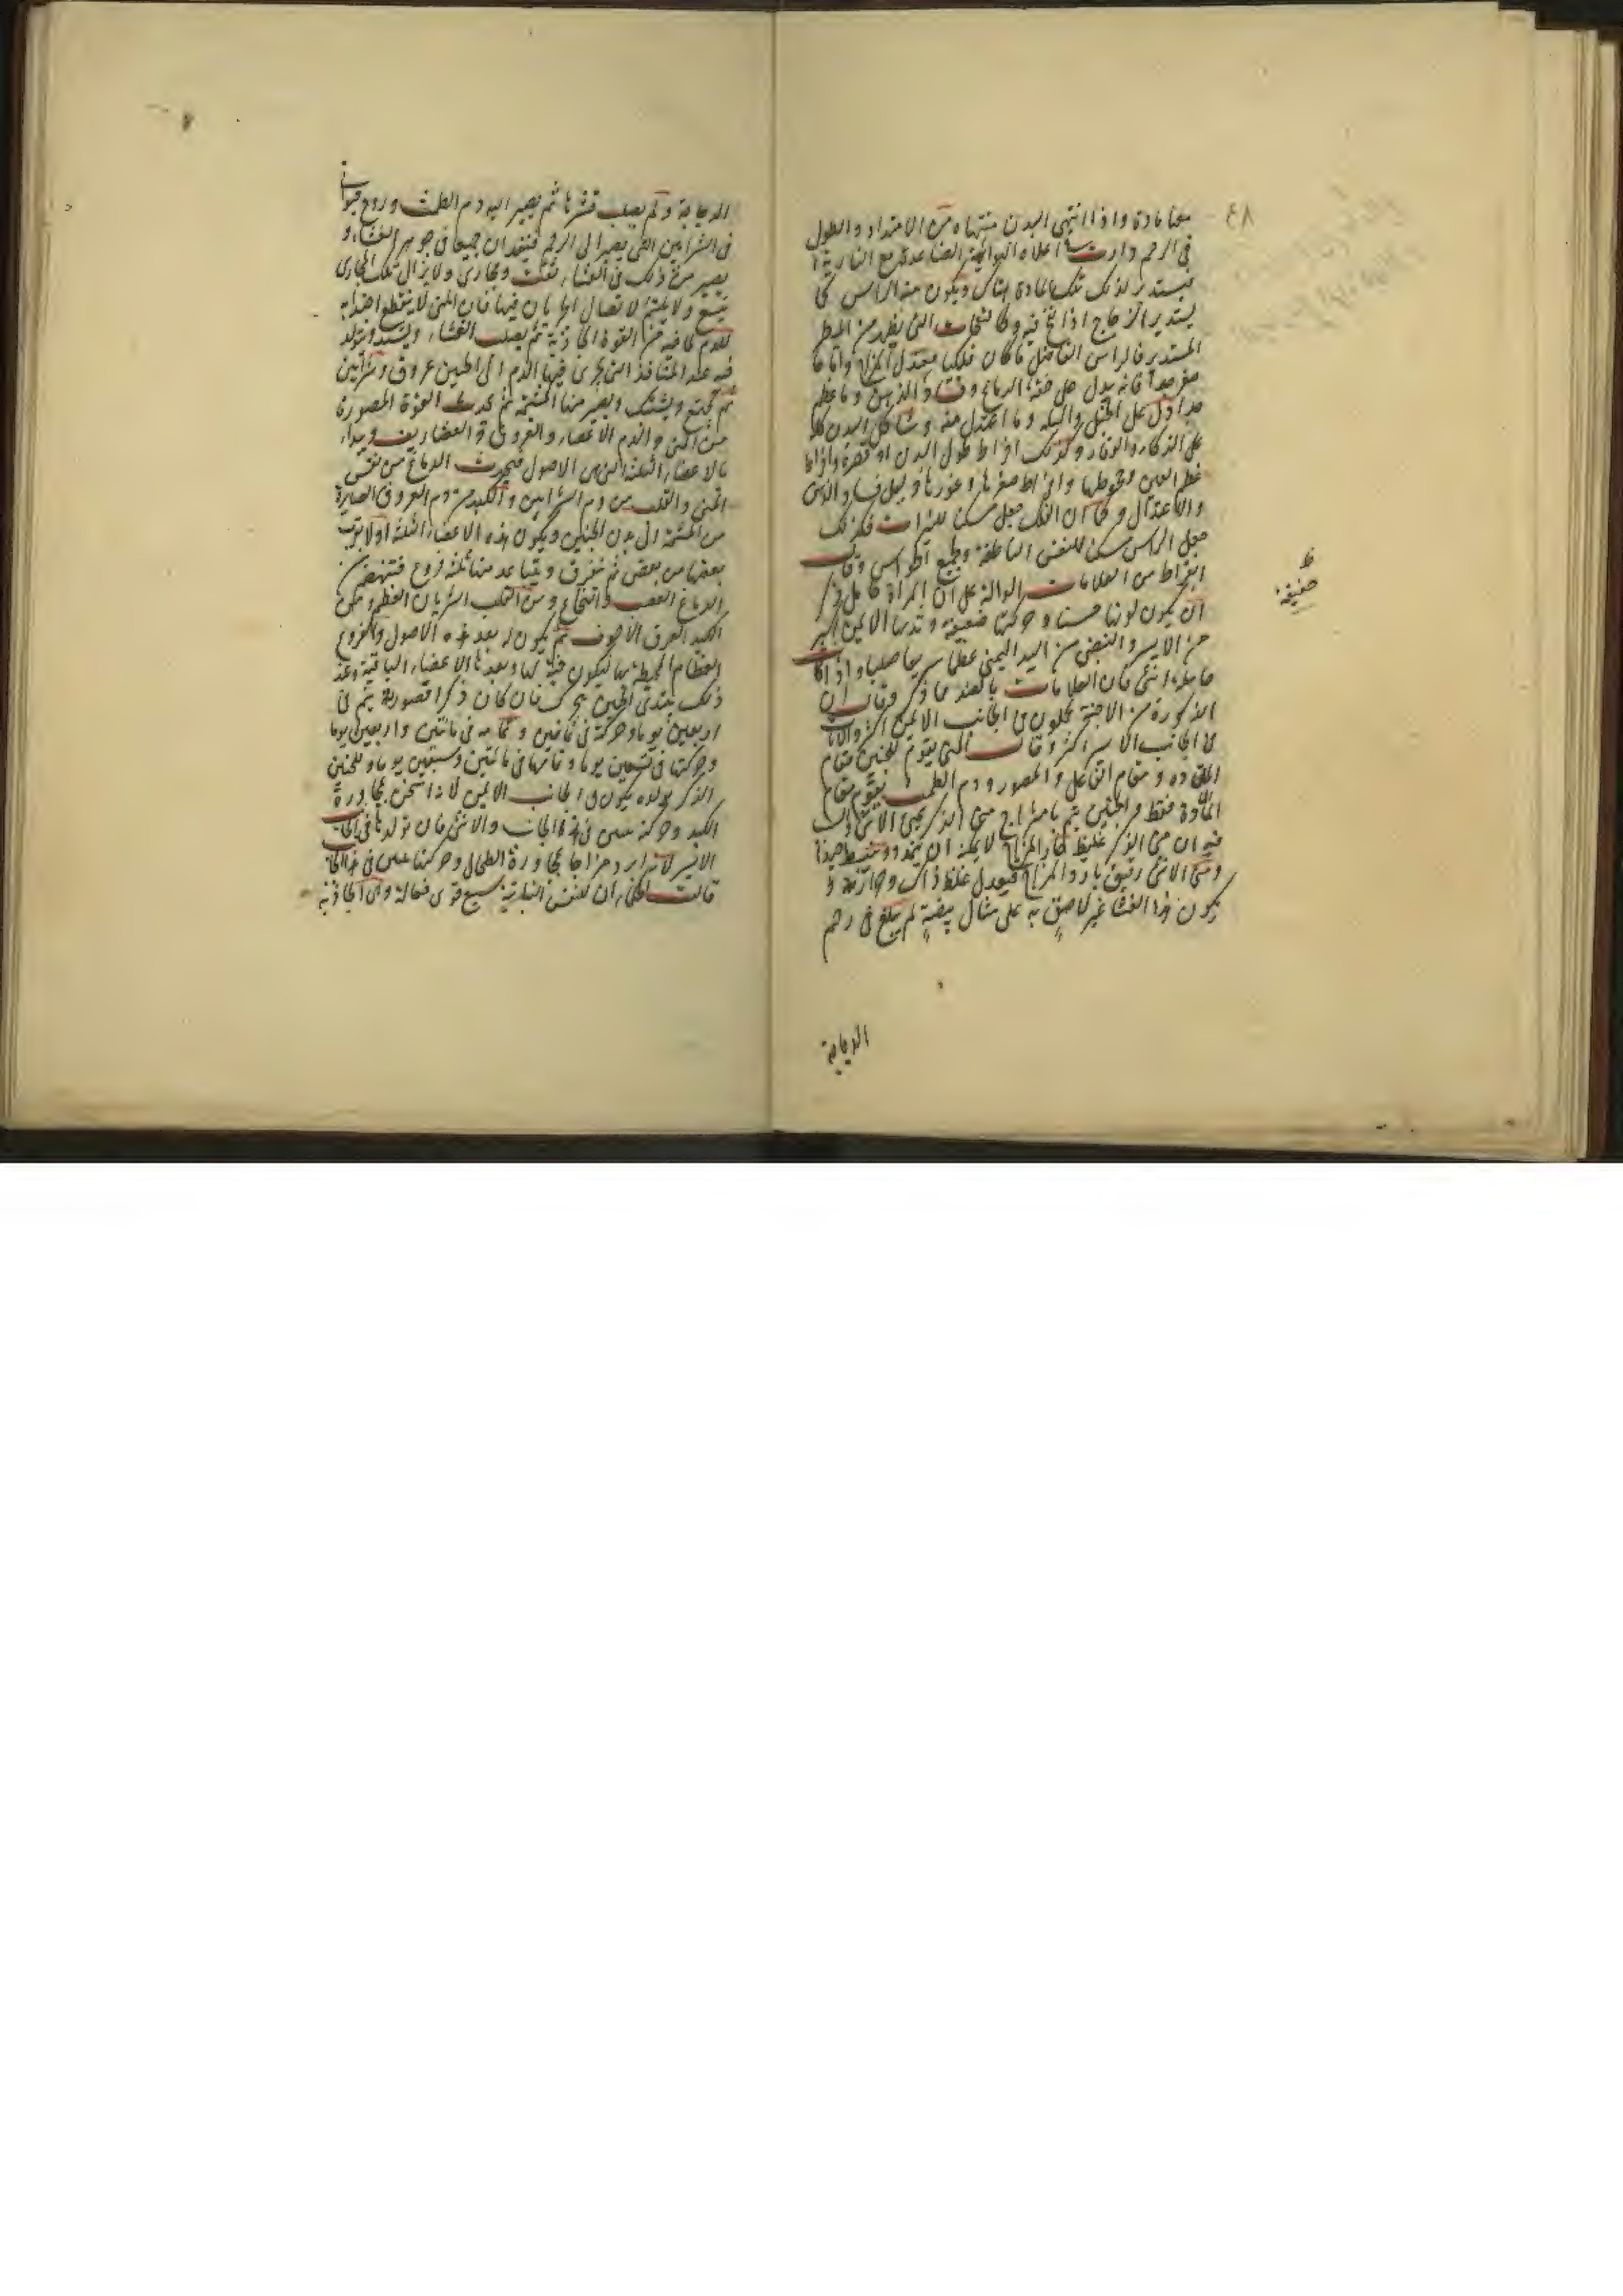 ٤٨
معنا مادة واذا انتهى البدن منتهاه من الامتداد والطول
فى الرحم دارت اعلاه الهوائية الصاعدة مع النارية
فيستدير لذلك تلك المادة هناك ويكون منه الراس كما
يستدير الزجاج اذا نفخ فيه وكالنفاخات التى تظهر من
المستدير فالراس الفاضل ما كان فلكيا معتدل واما ما
صغر جدا فانه يدل على خفة الدماغ وفساد الذهن وما عظم
جدا دل على الجهل والبله وما اعتدل منه وشاكل البدن كله
على الذكاء والوقار وكذلك افراط طول البدن او قصره وافراط
عظم العين وجحوظها وافراط صغرها وغورها وبين
والاعتدال وكما ان الفلك جعل مسكنا للنيرات فكذلك
جعل الراس مسكنا للنفس الناطقة وجميع الحواس وقال
ابقراط من العلامات الدالة على ان المراة حامل بذكر
ان يكون لونها حسنا وحركتها ضعيفة وثديها الايمن اكبر
من الايسر والنبض من اليد اليمنى عظيما سريعا صلبا واذا كانت
حاملة انثى كان العلامات بالضد مما ذكر وقال ان
الذكورة من الاجنة يكون فى الجانب الايمن اكثر والاناث
فى الجانب الايسر اكثر وقال المنى يقوم للجنين مقام
المادة ومقام الفاعل والمصور ودم الطمث يقوم مقام
المادة فقط والجنين يتم بامتزاج منى الذكر بمنى الانثى
فيه ان منى الذكر غليظ حار المزاج لا يمكنه ان يتمدد وينبسط جيدا
ومنى الانثى رقيق بارد المزاج فيعدل غلظ ذاك وحرارته و
يكون هذا الغشا غير لاصق به على مثال بيضة لم تبلغ فى رحم
الدجاجة
ظ
ضعيفة
الدجاجة ولم يصلب قشرها ثم يصير اليه دم الطمث وروح
فى الشرايين التى يصير الى الرحم فينفذان جميعا فى جوهر الغشاء و
يصير من ذلك فى الغشاء ثقب ومجارى ولا يزال تلك المجارى
يتسع ولا يلتئم لاتصال الجريان فيها فان المنى لا ينقطع اجتذابه
للدم لما فيه من القوة الجاذبة ثم يصلب الغشاء ويشتد ويتولد
فيه عند المنافذ التى يجرى فيها الدم الى الجنين عروق وشرايين
ثم يجتمع ويشتبك ويصير منها المشيمة ثم يحدث القوة المصورة
من المنى والدم الاعضاء والعروق والغضاريف ويبداء
بالاعضاء الثلثة التى هى الاصول فيحدث الدماغ من نفس
المنى والقلب من دم الشرايين والكبد من دم العروق الصايرة
من المشيمة الى بدن الجنين ويكون هذه الاعضاء الثلثة اولا بقرب
بعضها من بعض ثم يفترق ويتباعد منها ثلثة فروع فينهض من
الدماغ العصب والنخاع ومن القلب الشريان العظيم ومن
الكبد العرق الاجوف ثم يكون له بعد هذه الاصول والفروع
العظام المحيطة بها ليكون لها وبعدها الاعضاء الباقية وعند
ذلك يبتدى الجنين يتحرك فان كان ذكرا فصورته يتم فى
اربعين يوما وحركته فى ثمانين وتمامه فى مائتين واربعين يوما
وحركتها فى تسعين يوما وتمامها فى مائتين وسبعين يوما والجنين
الذكر تولده يكون فى الجانب الايمن لانه اسخن بمجاورة
الكبد وحركته تحس فى هذا الجانب والانثى فان تولدها فى الجانب
الايسر لانه ابرد مزاجا بمجاورة الطحال وحركتها تحس فى هذا الجانب
قالت الحكماء ان للنفس النباتية سبع قوى فعالة وهى الجاذبة